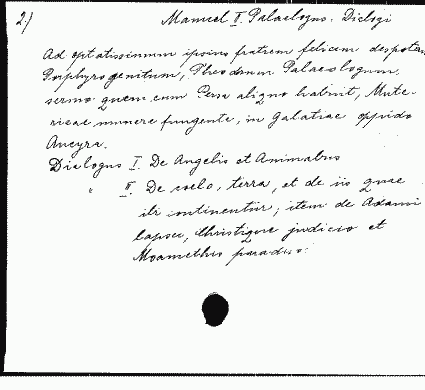 2) Manuel II. Palaelogus. Dialogi
Ad optatissimum ipsius fratrem felicem despotam
Porphyrogenitum, Theodorum Palaeologum,
sermo quem cum Persa aliquo habuit, Mute-
ricae munere fungente, in Galatiae oppido
Ancyra.
Dialogus I. De Angelis et Animabus
" II. De coelo, terra, et de iis quae
ibi continentur; item de Adami
lapsu, Christique judicio et
Moamethis paradiso.